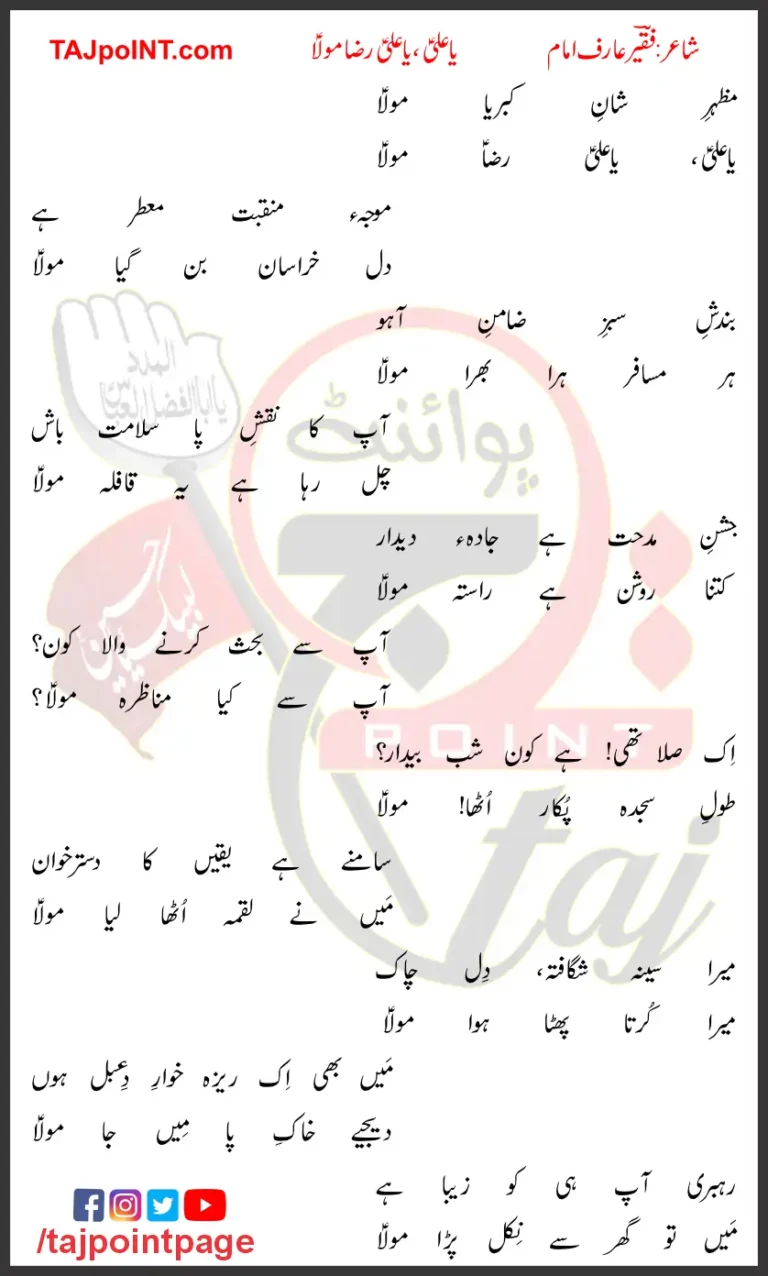 TAJpoINT.com
یا علیؑ ، یا علیؑ رضا مولاؑ
شاعر: فقیر عارف امام
مظہرِ شانِ کبریا مولاؑ
یا علیؑ، یا علیؑ رضاؑ مولاؑ
موجہء منقبت معطر ہے
دل خراسان بن گیا مولاؑ
بندشِ سبزِ ضامنِ آہو
ہر مسافر ہرا بھرا مولاؑ
آپ کا نقشِ پا سلامت باش
چل رہا ہے یہ قافلہ مولاؑ
جشنِ مدحت ہے جادہء دیدار
کتنا روشن ہے راستہ مولاؑ
آپ سے بحث کرنے والا کون؟
آپ سے کیا مناظرہ مولاؑ؟
اِک صلا تھی! ہے کون شب بیدار؟
طولِ سجدہ پُکار اُٹھا! مولاؑ
سامنے ہے یقیں کا دسترخوان
مَیں نے لقمہ اُٹھا لیا مولاؑ
میرا سینہ شگافتہ، دِل چاک
میرا کُرتا پھٹا ہوا مولاؑ
مَیں بھی اِک ریزہ خوارِ دِعبل ہوں
دیجیے خاکِ پا مِیں جا مولاؑ
رہبری آپ ہی کو زیبا ہے
مَیں تو گھر سے نِکل پڑا مولاؑ
/tajpointpage
المدد
یا ابا الفضل العباس
پوائنٹ
لبیک یا حسین
POINT
taj